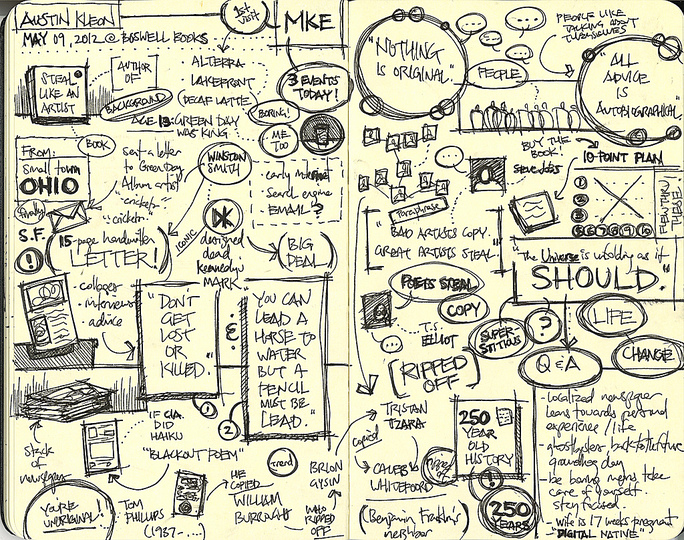 AUSTIN KLEON
MAY 09, 2012 @ BOSWELL BOOKS
1st visit
MKE
3 EVENTS TODAY!
STEAL
LIKE AN
ARTIST
AUTHOR
OF
BACKGROUND
ALTERRA
LAKEFRONT
(DECAF LATTE)
BORING!
AGE 13: GREEN DAY
WAS KING
ME
TOO
BOOK
FROM:
small town
OHIO
finally
S.F.
!
sent a letter
to Green Day
Album artist
"crickets"
"crickets"
WINSTON
SMITH
- early
- Search engine
- EMAIL?
15-page handwritten
LETTER!
ICONIC
DK
designed
dead
Kennedys
MARK
(BIG
DEAL)
- collages
- interviews
- advice
"DON'T
GET
LOST
OR
KILLED."
&
"YOU CAN
LEAD A
HORSE TO
WATER
BUT A
PENCIL
MUST BE
LEAD."
1
2
stack
of
newspapers
"IF CIA
DID
HAIKU
"BLACKOUT POEM"
YOU'RE
UNORIGINAL!
TOM
PHILLIPS
(1987-...)
HE
COPIED
WILLIAM
BURROUGHS
trend
BRION
GYSIN
WHO
RIPPED
OFF
"NOTHING
IS ORIGINAL."
PEOPLE
PEOPLE LIKE
TALKING ABOUT
THEMSELVES
"ALL
ADVICE
IS
AUTOBIOGRAPHICAL"
BUY THE
BOOK!
Steve Jobs
10-POINT PLAN
1
2
3
4
5 6 7 8 9 10
FLEW THRU
THESE!
Paraphrase
"BAD ARTISTS COPY.
GREAT ARTISTS STEAL."
POETS STEAL
COPY
T.S.
ELLIOT
[RIPPED
OFF]
"The Universe is unfolding as it
SHOULD."
SUPER-
STITIONS
?
LIFE
Q & A
CHANGE
TRISTAN
TZARA
copied
CALEB
WHITEFOORD
(Benjamin Franklin's
neighbor)
250
YEAR
OLD
HISTORY
!
250
YEARS
- localized newspaper
leans towards personal
experience / life
groundhog day
- be boring
care of yourself.
stay focused.
- wife is 17 weeks pregnant
- "DIGITAL NATIVE"